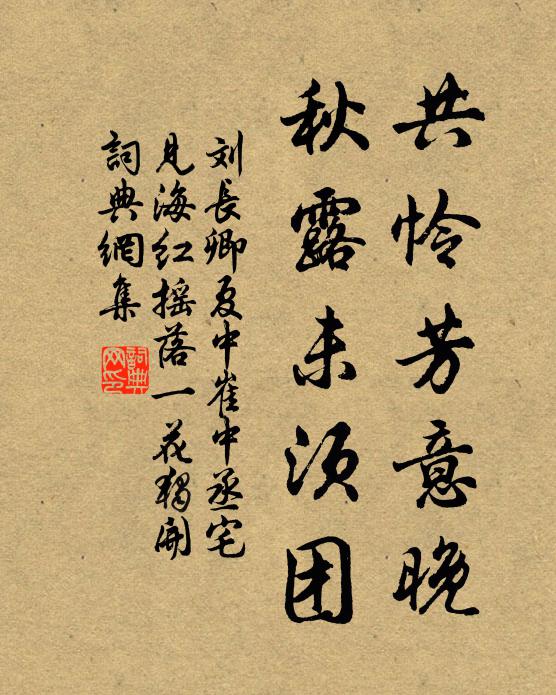 共怜芳意晚
秋露未须团
刘长卿夏中崔中丞宅
见海红摇落一花独开
詞典網集
詞典网印